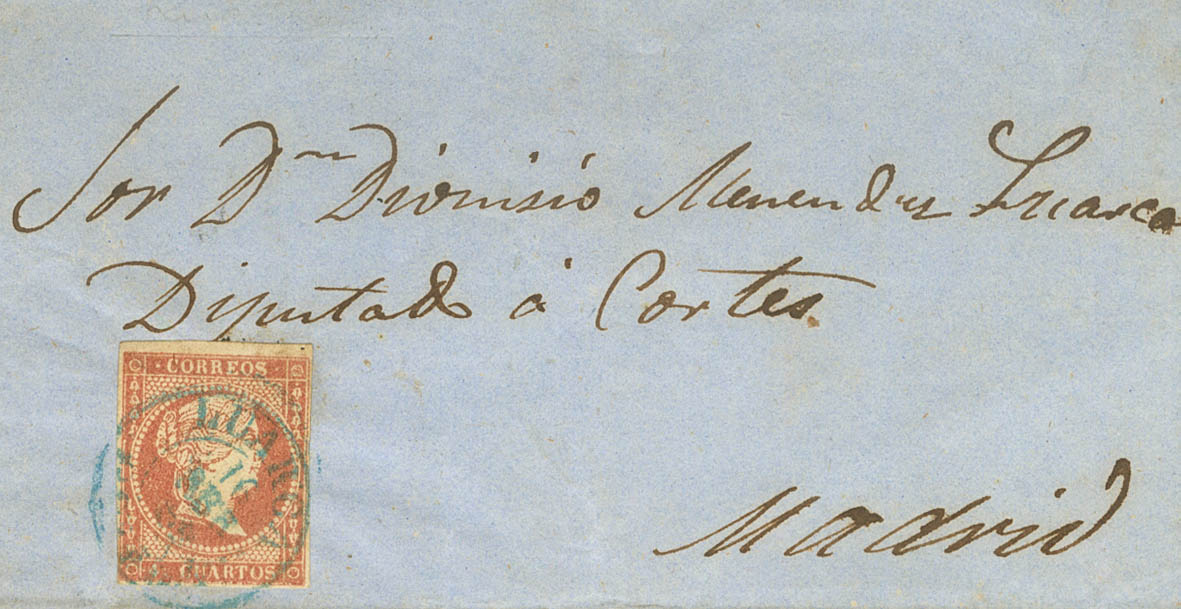 Sor Dn Dionisio Menendez Luarca
Diputado á Cortes.
CORREOS
LUARCA
CUARTOS
Madrid